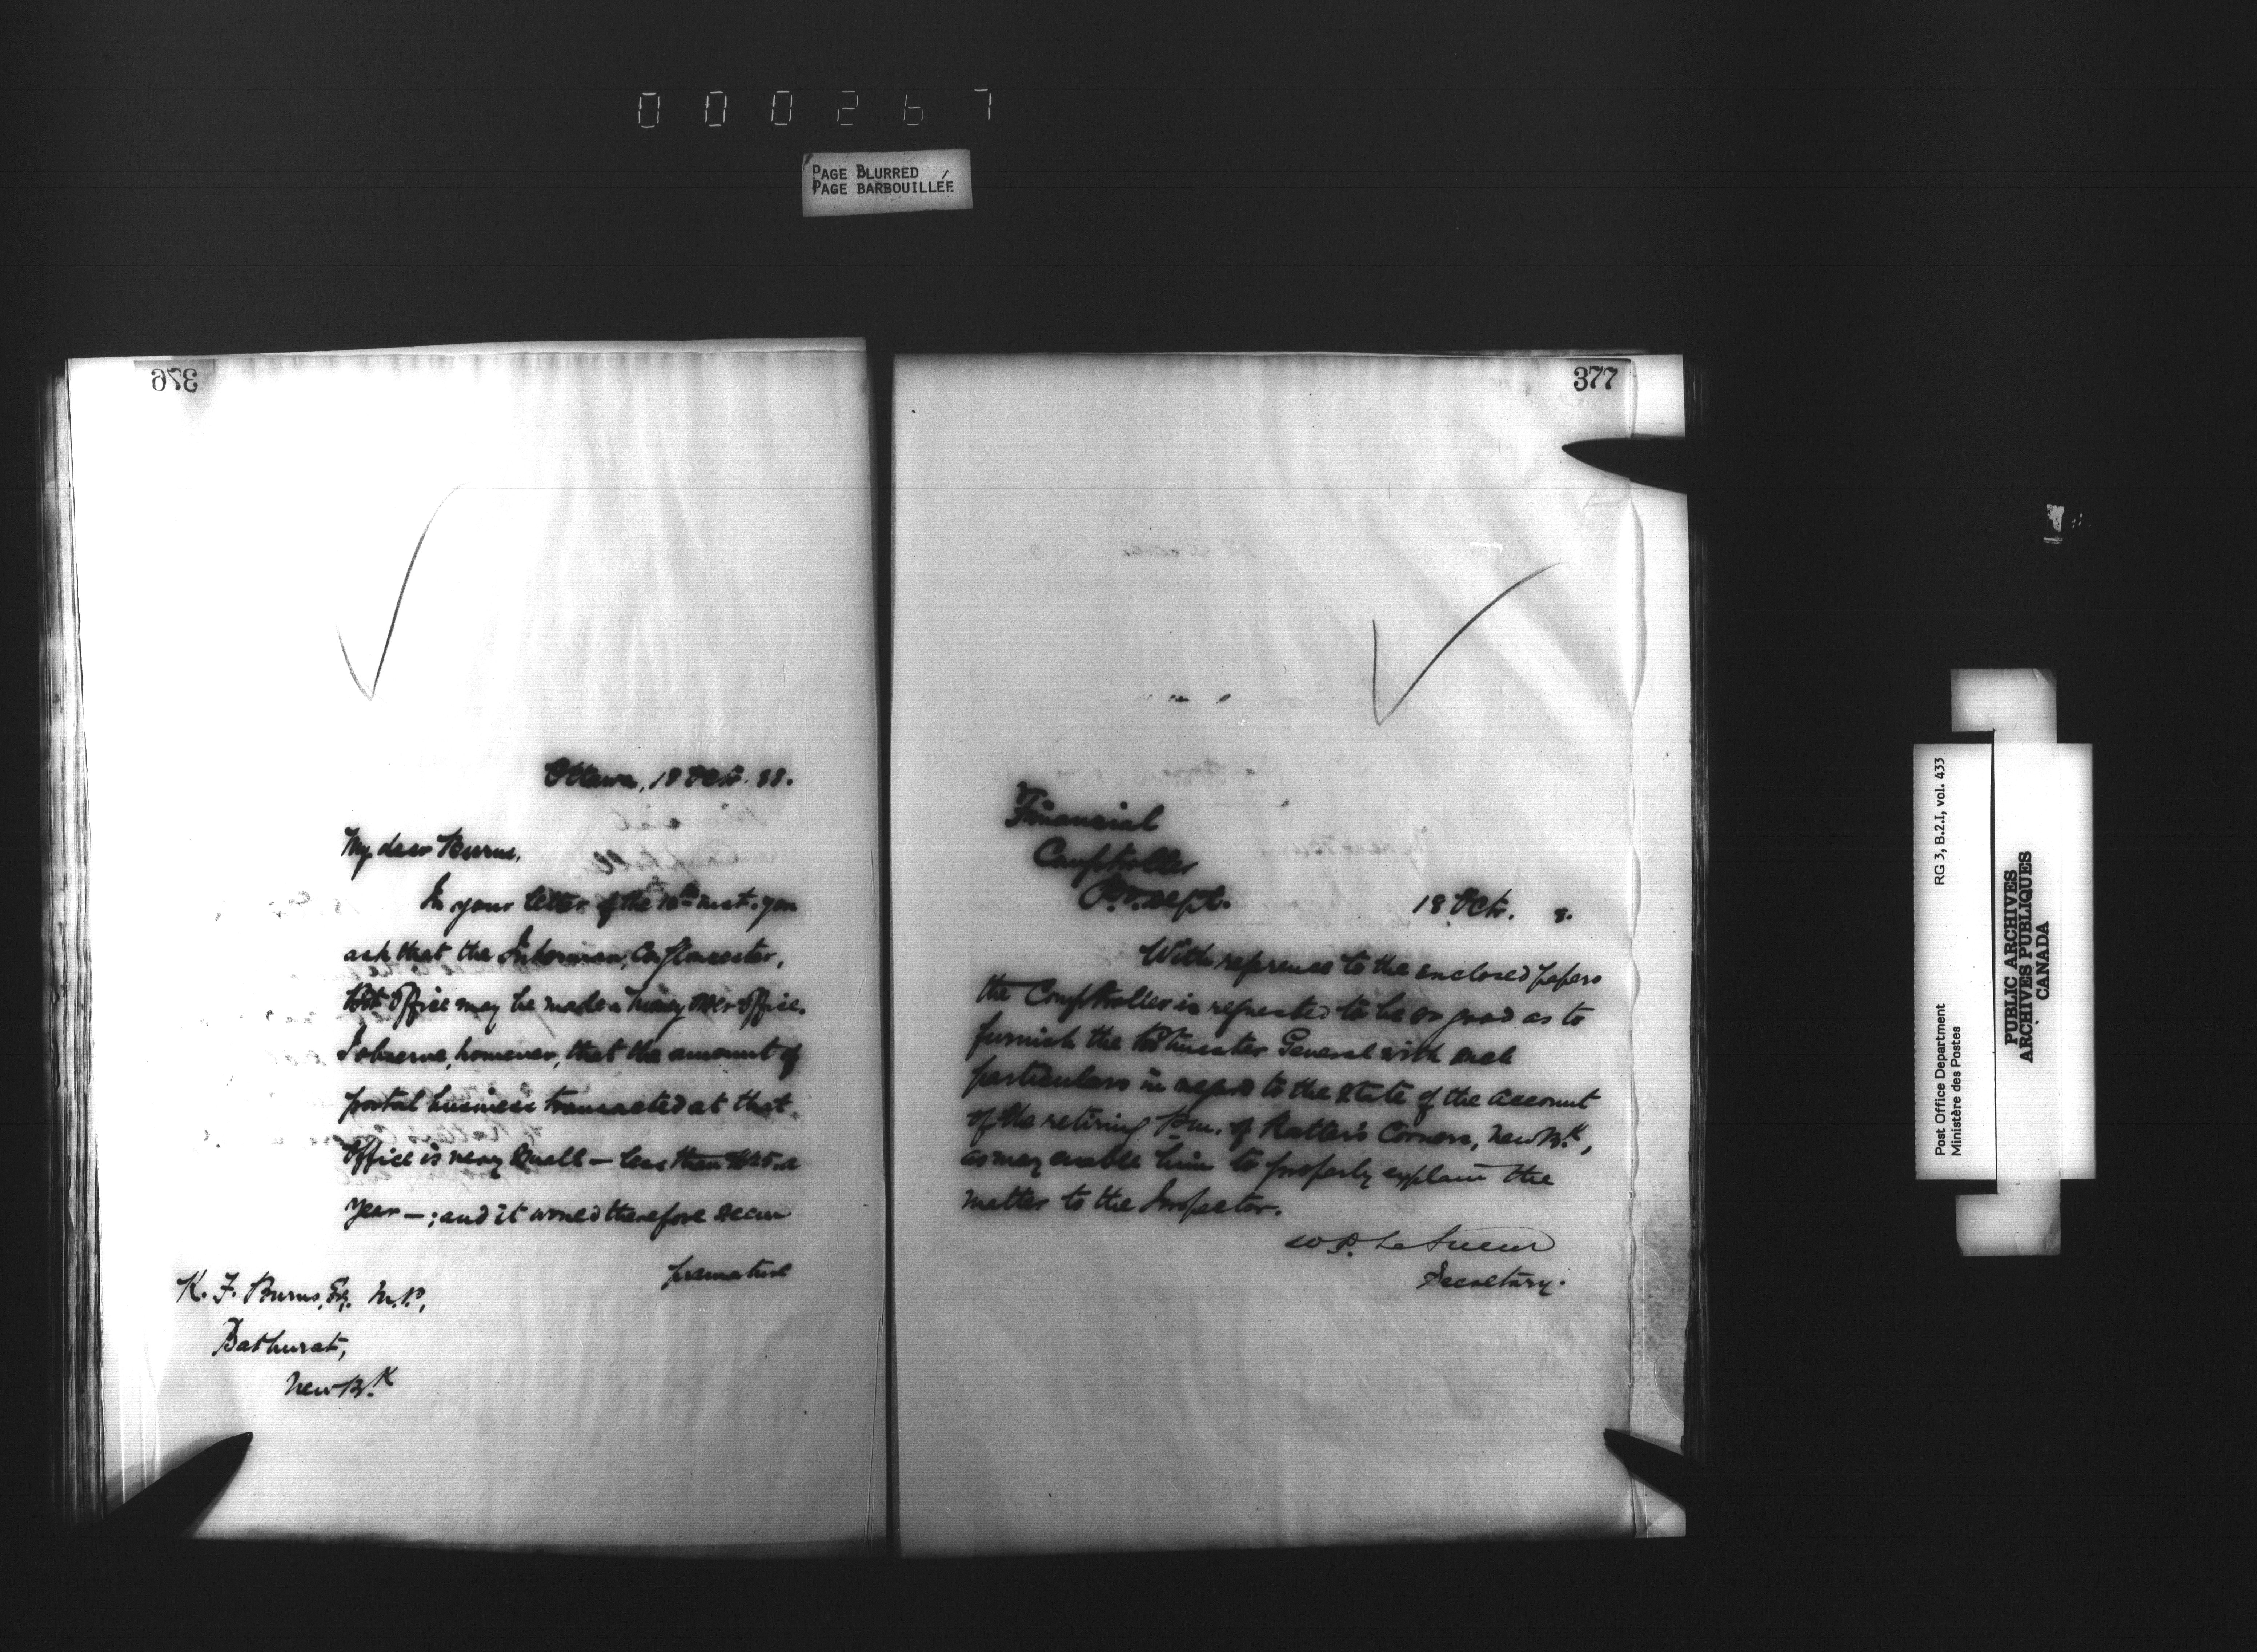 000267
PAGE BLURRED
PAGE BARBOUILLÉE
376
Ottawa, 18 Octr. 88.
My dear Burns,
In your letter of the 10th inst. you
ask that the Inkerman, Co. Gloucester,
Post Office may be made a Money Order Office.
I observe, however, that the amount of
postal business transacted at that
Office is very small — less than a
year — ; and it would therefore seem
premature
K. F. Burns, Esq. M.P.,
Bathurst,
New Bk
377
Financial
Comptroller
P.O. Dept.
18 Octr. 8.
With reference to the enclosed papers
the Comptroller is requested to be so good as to
furnish the Postmaster General with such
particulars in regard to the state of the account
of the retiring P.m. of Ratter's Corners, New Bk,
as may enable him to properly explain the
matter to the Inspector.
W. D. LeSueur
Secretary.
Post Office Department
Ministère des Postes
RG 3, B.2.I, vol. 433
PUBLIC ARCHIVES
ARCHIVES PUBLIQUES
CANADA